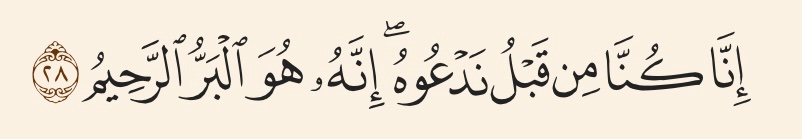 إِنَّا كُنَّا مِن قَبْلُ نَدْعُوهُ ۖ إِنَّهُۥ هُوَ ٱلْبَرُّ ٱلرَّحِيمُ ٢٨